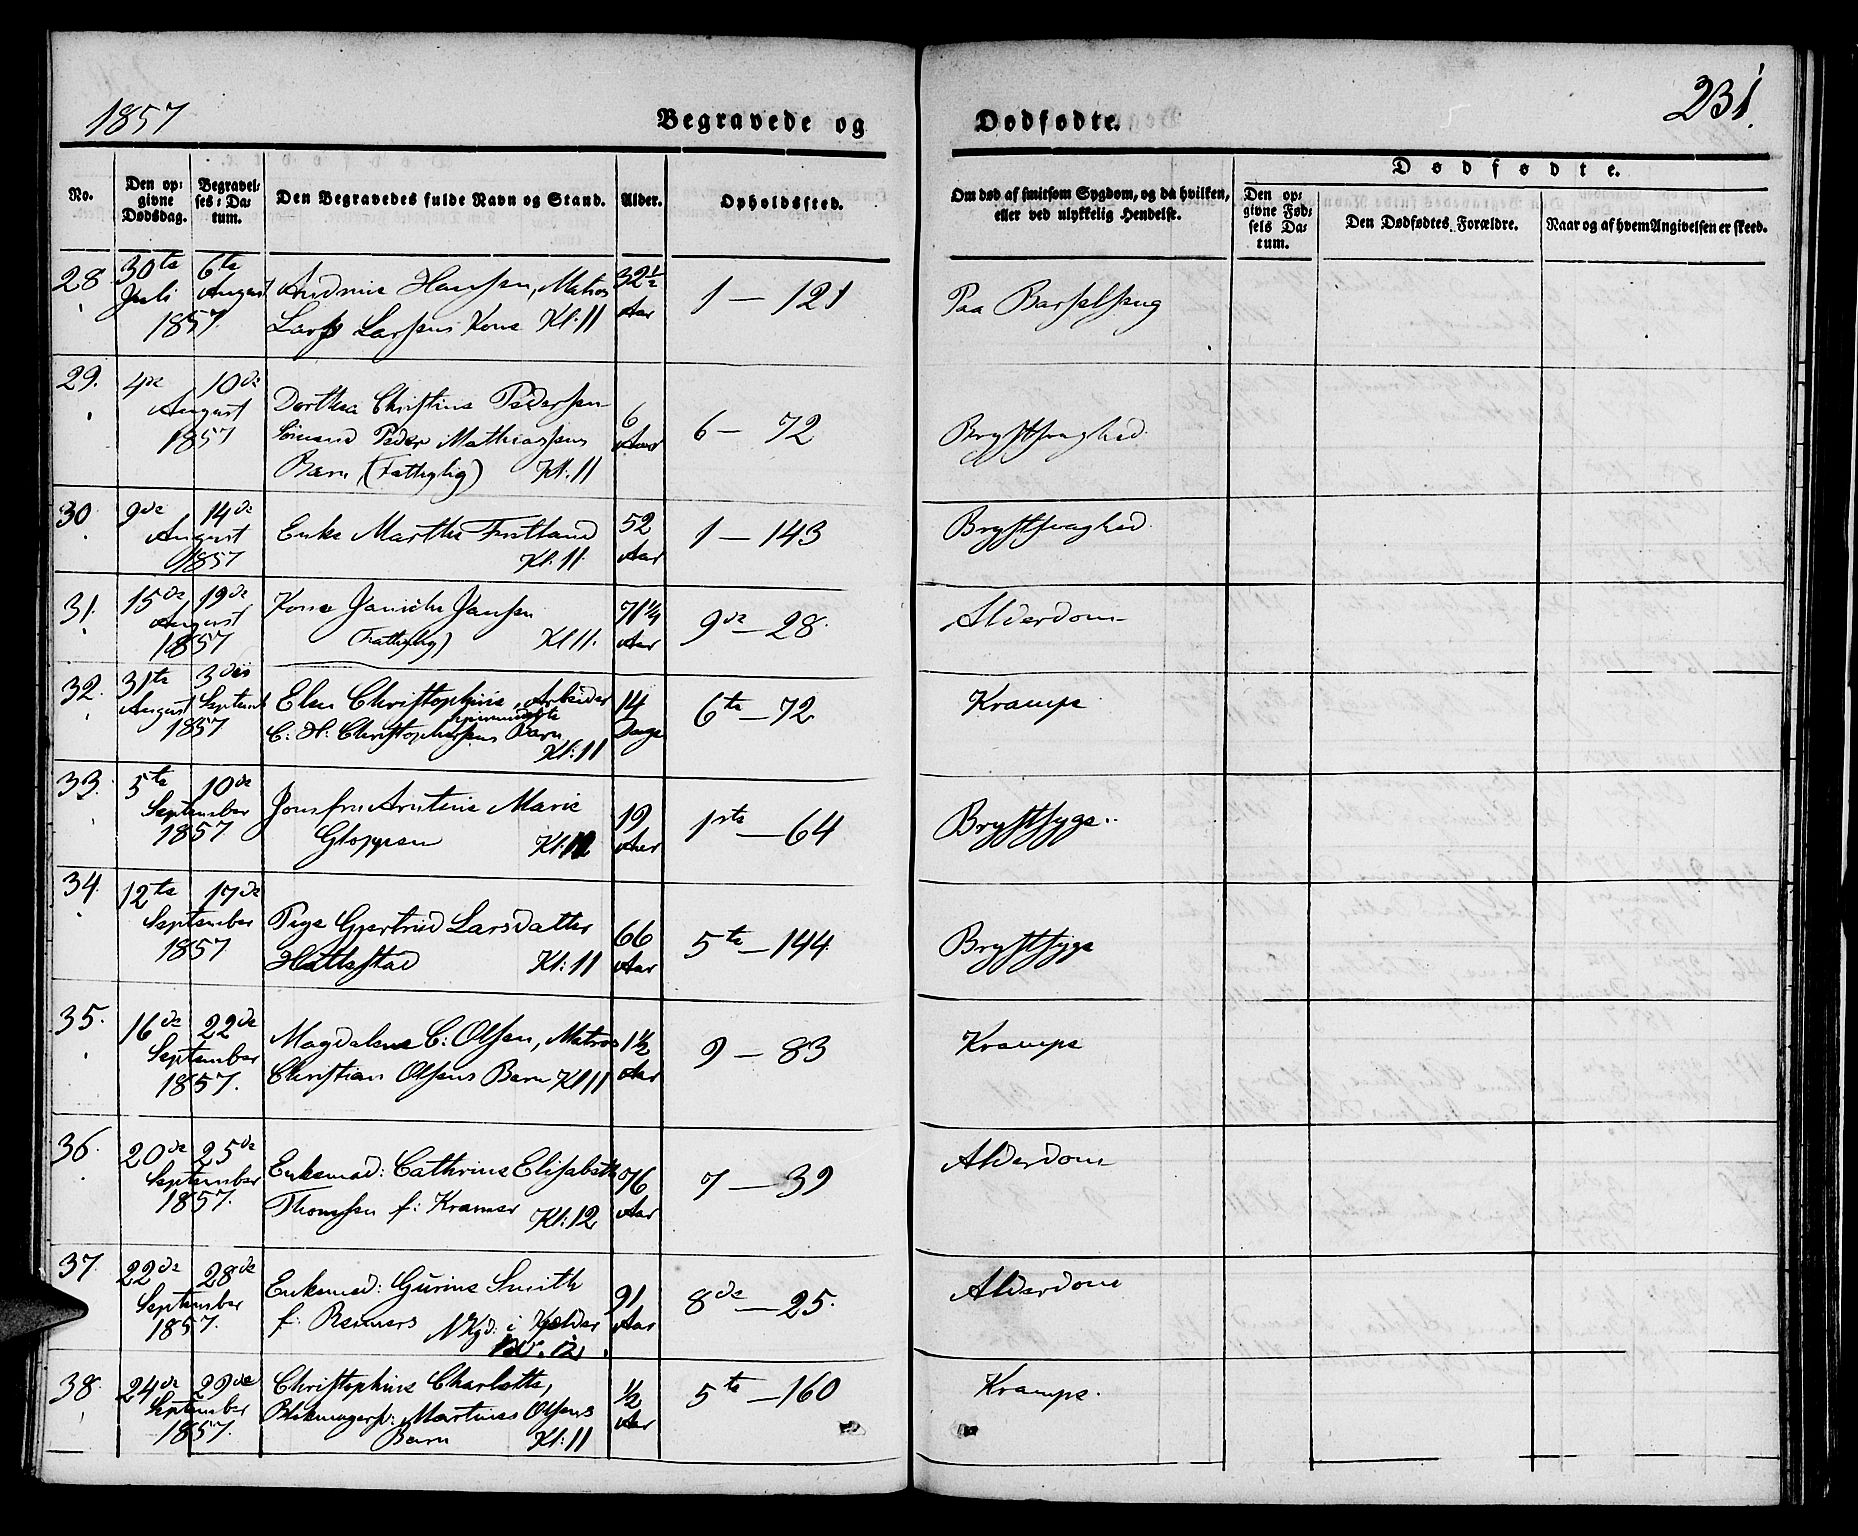 1857
Begravede og
Dødfødte.
231.
No.
Den opgivne Dødsdag.
Begravelses-Datum.
Den Begravedes fulde Navn og Stand.
Alder.
Opholdssted.
Om død af smitsom Sygdom, og da hvilken, eller ved ulykkelig Hendelse.
Dødfødte.
Den opgivne Fødsels Datum.
Den Dødfødtes Forældre.
Naar og af hvem Angivelsen er skeed.
28. 30te Juli 6te August 1857.
Hansen, Matros
Lars Larsens Kone Kl: 11
32½ Aar
1 — 121
Paa Barselseng
29. 4de 10de August 1857
Dorthea Christine Pedersen
Sømand Peder Mathiassens
Barn, (Fattiglig) Kl: 11
6 Aar
6 — 72
Brystsvaghed.
30. 9de 14de August 1857
Enke Marthe
Kl: 11.
52 Aar
1 — 143
Brystsvaghed.
31. 15de 19de August 1857
Kone Janiche Jansen
(Fattiglig) Kl 11.
71¼ Aar
9de — 28.
Alderdom
32. 31te August 3die Septemb 1857
Elen Christophine, Arbeider
C: H: Christophersens Barn
Kl: 11
14 Dage
6te — 72
Krampe
33. 5te 10de September 1857
Jomfru Marie
Gloppen Kl: 12
19 Aar
1ste — 64
Brystsyge.
34. 12te 17de September 1857.
Pige Gjertrud Larsdatter
Hatlestad Kl: 11
66 Aar
5te — 144.
Brystsyge
35. 16de 22de September 1857.
Magdalene C: Olsen, Matros
Christian Olsens Barn Kl 11
1½ Aar
9 — 83
Krampe
36. 20de 25de September 1857.
Enkemad: Cathrine Elisabeth
Thomsen f: Kramer Kl: 12
76 Aar
7 — 39
Alderdom
37. 22de 28de September 1857.
Enkemad: Gurine Smith
f: Reimers NKgd: i Kjelder
Kl: 12.
91 Aar
8de — 25.
Alderdom
38. 24de 29de September 1857.
Christophine Charlotte,
Blikmagersv: Martinus Olsens
Barn Kl: 11
½ Aar
5te — 160
Krampe.